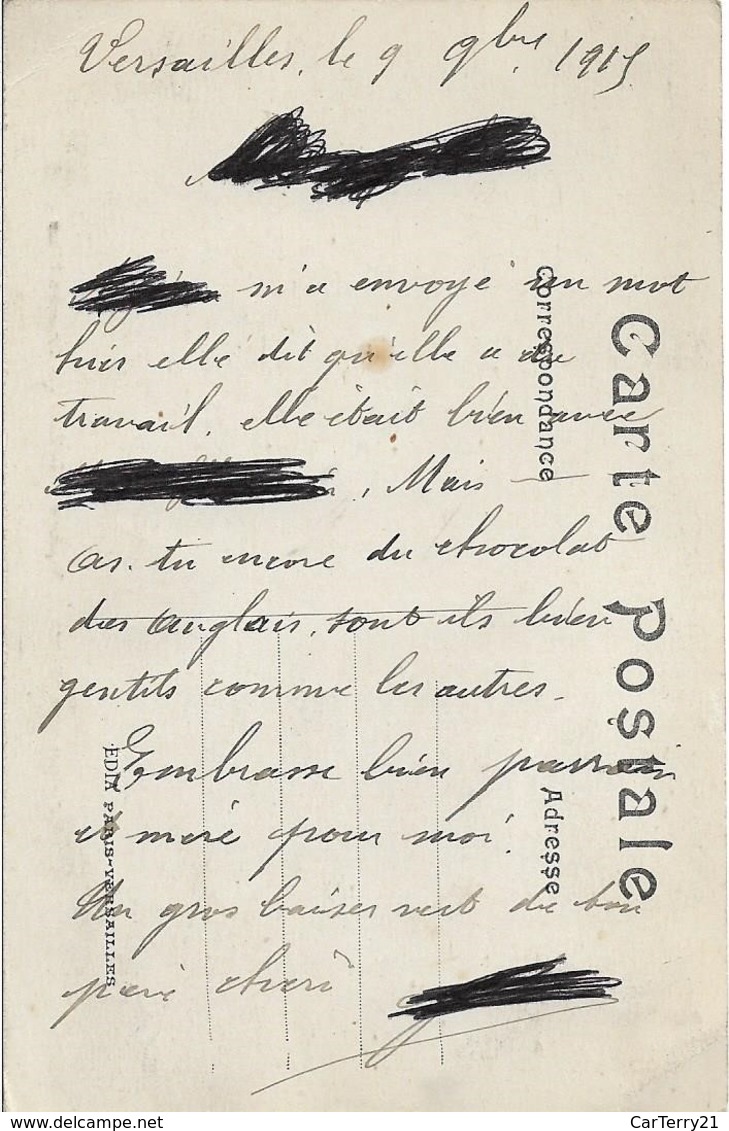 Versailles, le 9 9bre 1915
m'a envoyé un mot
hier elle dit qu'elle a du
travail, elle était bien avec
, Mais
as-tu encore du chocolat
des anglais, sont ils bien
gentils comme les autres.
Embrasse bien parrain
et mere pour moi.
Un gros baiser vert de ton
pere cheri
Carte Postale
Correspondance
Adresse
EDIA PARIS-VERSAILLES
CarTerry21
delcampe.net